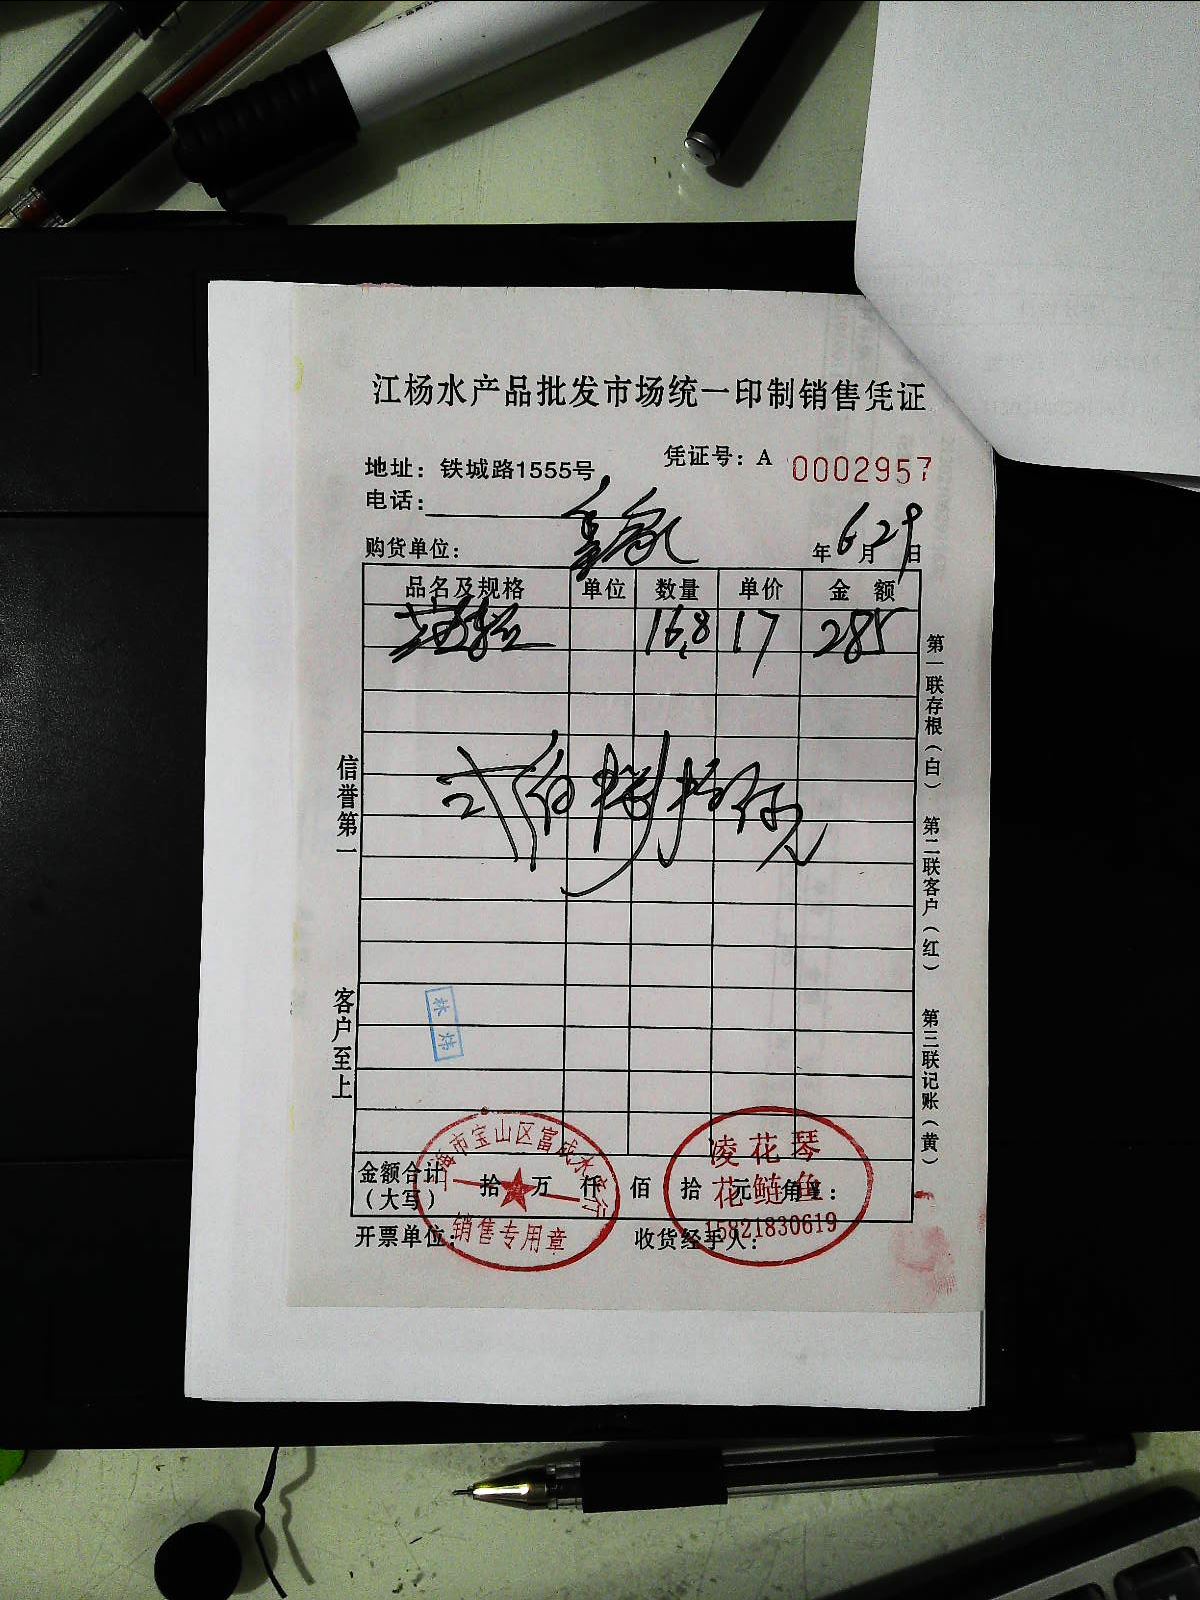 江杨水产品批发市场统一印制销售凭证
地址：铁城路1555号
凭证号：A 0002957
电话：
购货单位：
年 6 月 29 日
品名及规格 单位 数量 单价 金额
16.8 17 285
信誉第一
客户至上
第一联存根（白） 第二联客户（红） 第三联记账（黄）
金额合计（大写） 拾 万 仟 佰 拾 元 角 ：
开票单位：
收货经手人：
海市宝山区富成水产行
销售专用章
凌花琴
花鲢鱼
15821830619